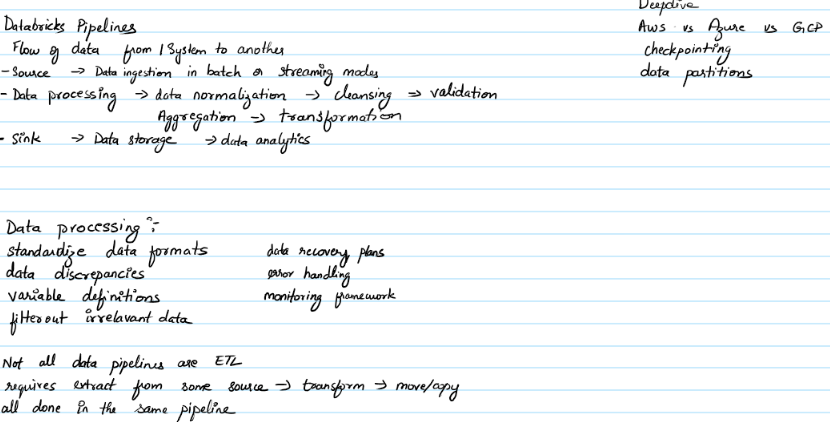 Databricks Pipelines
Flow of data from 1 System to another
- Source → Data ingestion in batch or streaming modes
- Data processing → data normalization → cleansing → validation
Aggregation → transformation
- Sink → Data storage → data analytics
Deepdive
Aws vs Azure vs GCP
checkpointing
data partitions
Data processing :-
standardize data formats
data discrepancies
variable definitions
filter out irrelavant data
data recovery plans
error handling
monitoring framework
Not all data pipelines are ETL
requires extract from some source → transform → move/copy
all done in the same pipeline